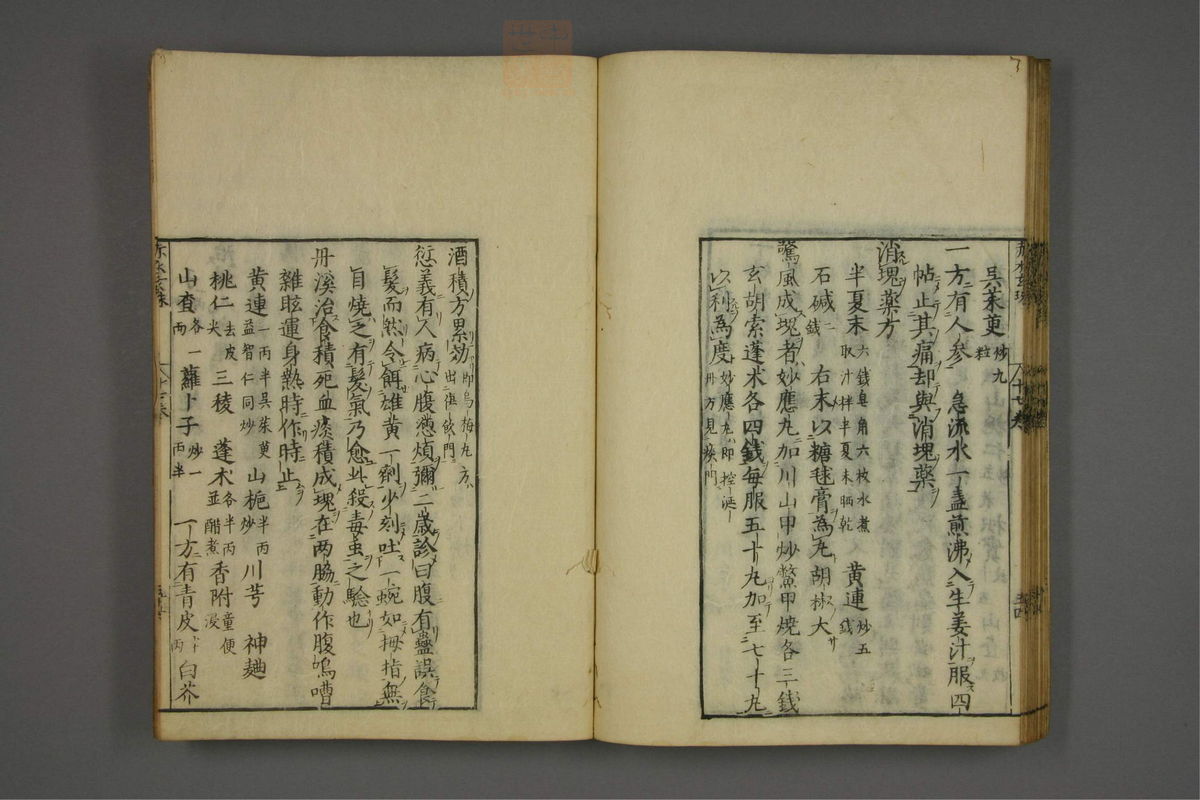 吳茱萸炒九粒
一方有人参 急流水一盞煎沸入生姜汁服四
帖止其痛却與消塊藥
消塊藥方
半夏末六錢皂角六枚水煮取汁拌半夏末晒乾 黄連炒五錢
石碱二錢 右末以糖毬膏為丸胡椒大
驚風成塊者妙應丸加川山甲炒鱉甲燒各三錢
玄胡索蓬术各四錢每服五十丸加至七十丸
以利為度妙應丸即控涎丹方見痰門
酒積方累効即烏梅丸方出傷飲門
愆義有人病心腹懣煩彌二歳診曰腹有蠱誤食
髪而然令餌雄黄一劑少刻吐一蛇如拇指無
目燒之有髪氣乃愈此殺毒虫之驗也
丹溪治食積死血痰積成塊在两脇動作腹鳴嘈
雜眩運身熱時作時止
黄連一两半吳茱萸益智仁同炒 山梔半两炒 川芎 神麯
桃仁去皮尖 三稜 蓬术各半两並醋煮 香附童便浸
山査各一两 蘿卜子炒一两半 一方有青皮 白芥